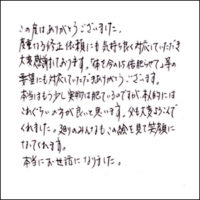 この度はありがとうございました。
度重なる修正依頼にも気持ち良く対応していただき
大変感謝しております。「体を今の1.5倍肥らせて」等の
要望にも対応していただきありがとうございます。
本当はもう少し実物は肥ているのですが、本人的には
これぐらいの方が良いと思います。父も大変よろこんで
くれました。廻りのみんなもこの絵を見て笑顔に
なってくれます。
本当にお世話になりました。